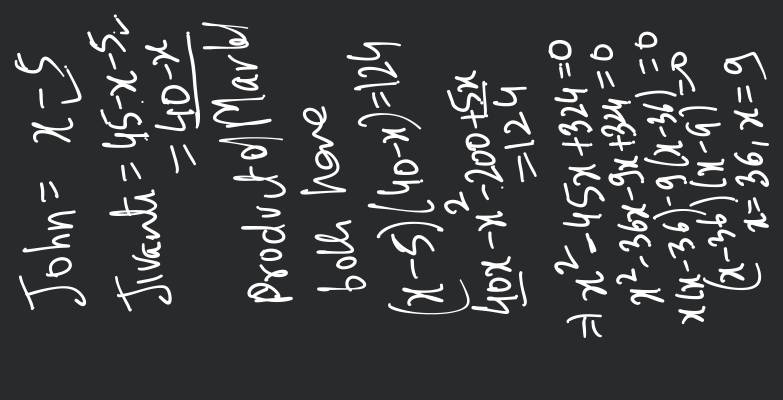 John = x-5
Jivanti = 45-x-5
= 40-x
Product of Marbl
both have
(x-5)(40-x)=124
40x-x²-200+5x
=124
⇒ x²-45x+324=0
x²-36x-9x+324=0
x(x-36)-9(x-36)=0
(x-36)(x-9)=0
x=36, x=9